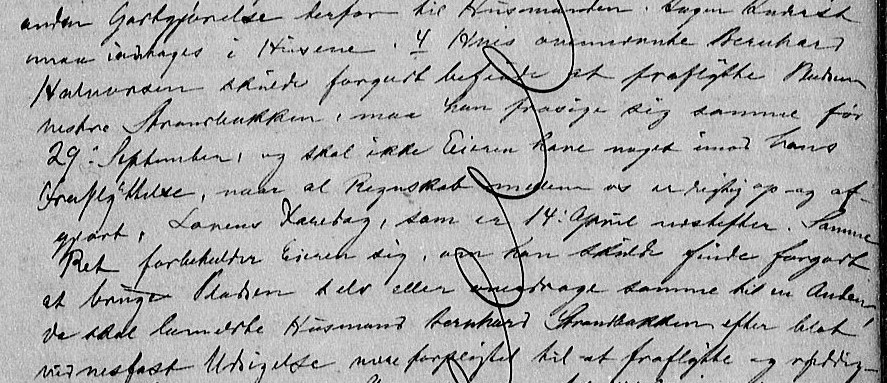 anden Godtgjørelse derfor til Husmanden. Ingen Inderst
maa indtages i Husene. 4 Hvis ommeldte Bernhard
Halvorsen skulde forgodt befinde at fraflytte Pladsen
nedre Strandbakken, maa han frasige sig samme før
29: September, og skal ikke Eieren have noget imod hans
Fraflyttelse, naar al Regnskab mellem os er rigtig op- og af-
gjort, Lovens Faredag, som er 14: April nestefter. Samme
Ret forbeholder Eieren sig, om han skulde finde forgodt
at bruge Pladsen selv eller overdrage samme til en Anden,
da skal bemeldte Husmand Bernhard Strandbakken efter blot
vidnesfast Udsigelse være forpligtet til at fraflytte og ryddig-